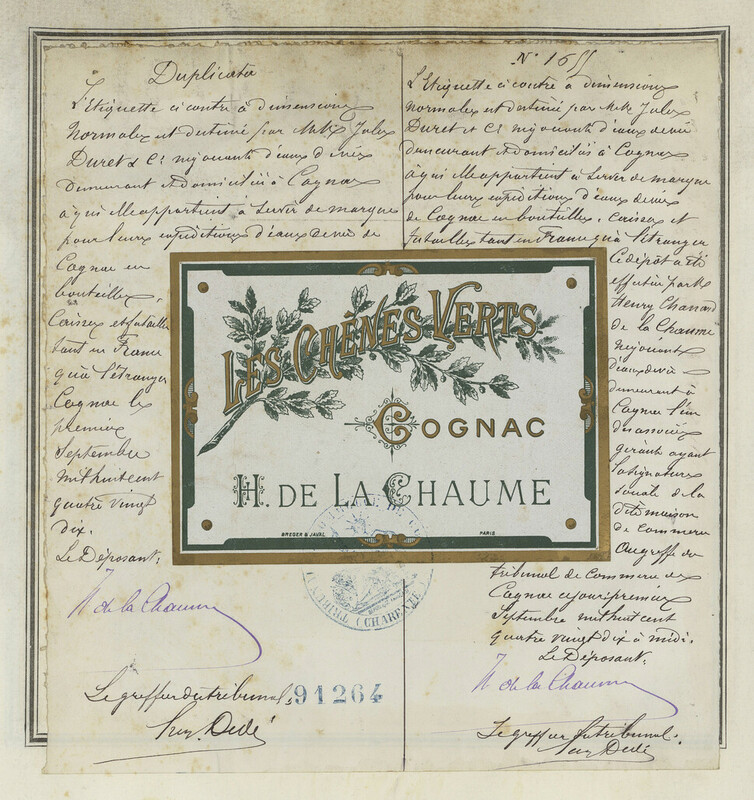 Duplicata
L'Etiquette ci contre à dimensions
normales est destiné par MM. Jules
Duret & Cie négociants d'eaux de vies
demeurant et domiciliés à Cognac
à qui elle appartient à servir de marque
pour leurs expéditions d'eaux de vie de
Cognac en
bouteilles,
Caisses et futailles
tant en France
qu'à l'étranger
Cognac le
premier
Septembre
mil huit cent
quatre vingt
dix.
Le Déposant,
H de la Chaume
Le greffier du tribunal,
91264
Dédé
N° 1655
L'Etiquette ci contre à dimensions
normales est destiné par MM. Jules
Duret et Cie négociants d'eaux de vie
demeurant et domiciliés à Cognac
à qui elle appartient à servir de marque
pour leurs expéditions d'eaux de vies
de Cognac en bouteilles, caisses et
futailles tant en France qu'à l'étranger
Ce dépôt a été
effectué par M
Henry Chanard
de la Chaume
négociant
d'eaux de vie
demeurant à
Cognac l'un
des associés
gérants ayant
la signature
sociale de la
dite maison
de commerce
au greffe du
tribunal de commerce de
Cognac ce jour premier
Septembre mil huit cent
quatre vingt dix à midi.
Le Déposant,
H de la Chaume
Le greffier du tribunal.
Dédé
LES CHÊNES VERTS
COGNAC
H. DE LA CHAUME
BREGER & JAVAL PARIS
(CHARENTE)